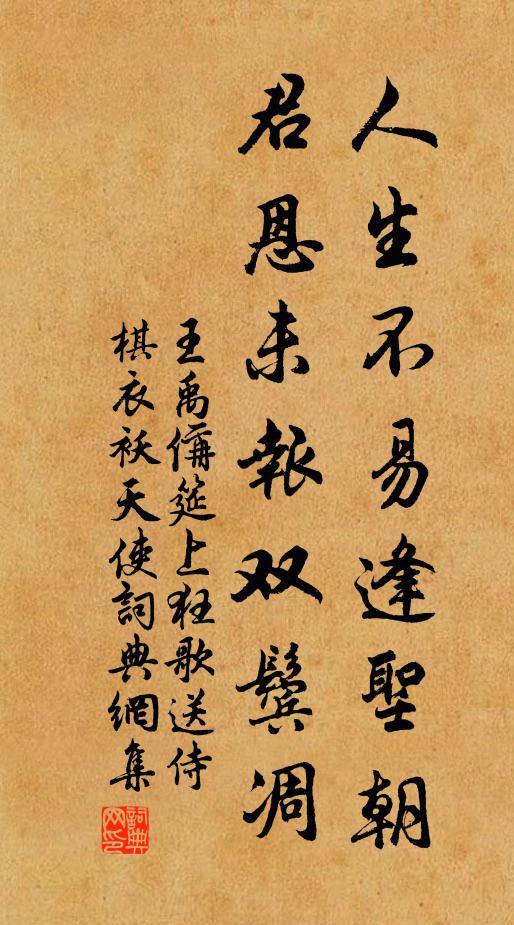 人生不易逢聖朝
君恩未報双鬢凋
王禹偁筵上狂歌送侍
棋衣袄天使詞典網集
詞典网印